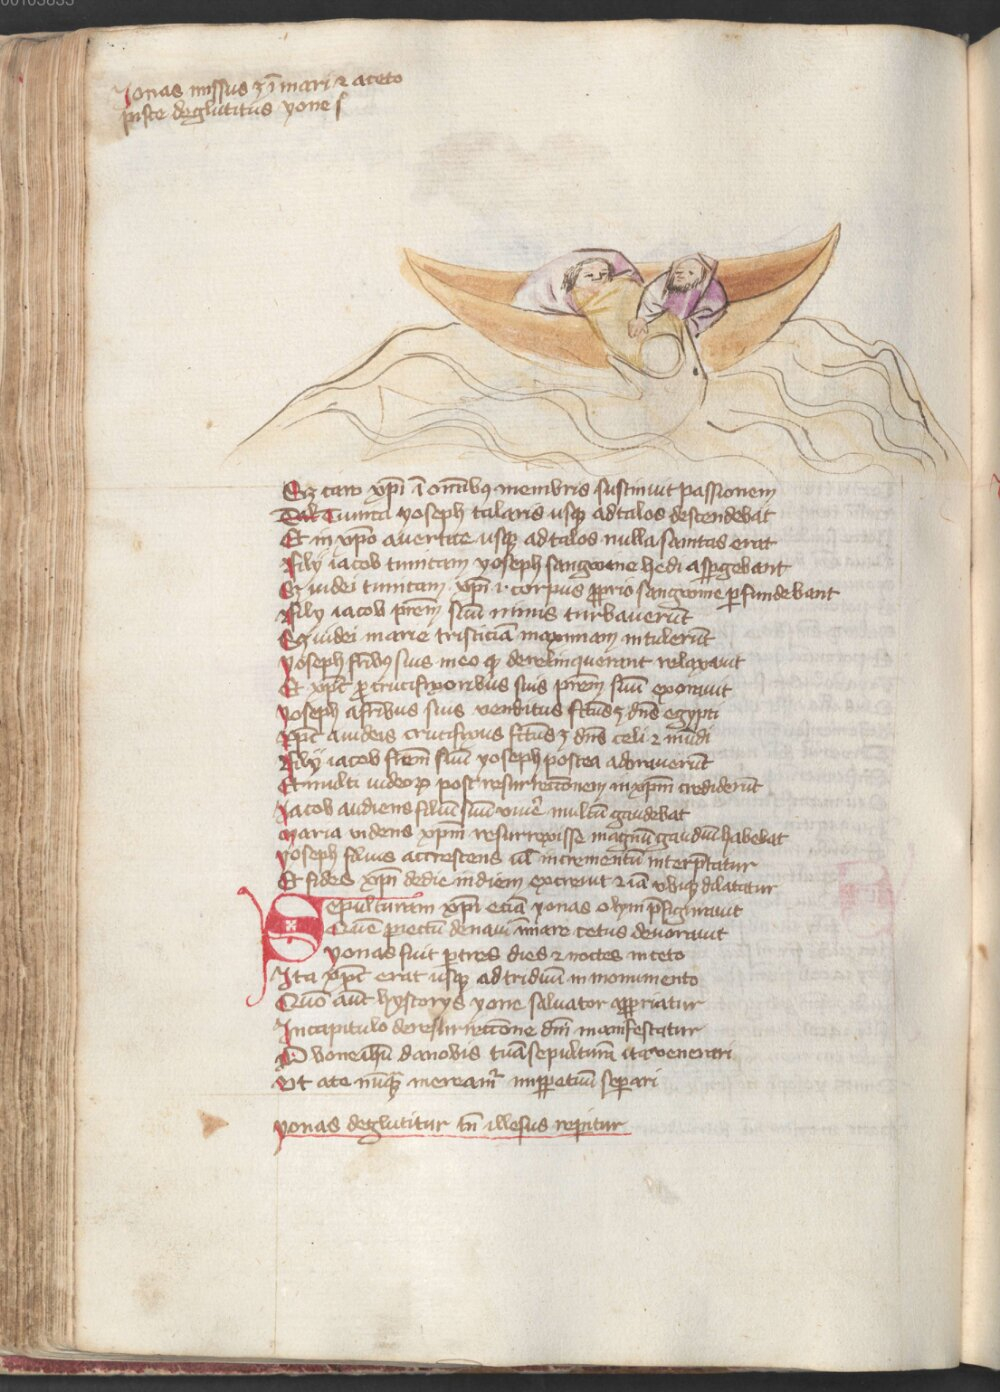 00103835
Jonas missus ʒ ī mari ⁊ a ceto
pisce deglutitus yone f
Et caro xp̄i ī om̄ībꝰ membris sustinuit passionem
Tunica yoseph talaris usqꝫ ad talos descendebat
Et in xp̄o a vertice usqꝫ ad talos nulla sanitas erat
Filij iacob tunicam yoseph sangwine hedi aspgebant
Et iudei tunicam xp̄i .i. corpus ꝓprio sangwine ꝑfundebant
Filij iacob pr̄em suū nimis turbaverūt
Et iudei marie tristiciā maximam intulerūt
Yoseph fr̄ibꝰ suis in eo qꝫ dereliquerant relaxavit
Et xp̄c ꝓ crucifixoribus suis pr̄em suū exoravit
Yoseph a fr̄ibus suis venditus fc̄us ʒ dn̄s egypti
Xp̄c a iudeis crucifixus fc̄us ʒ dn̄s celi ⁊ mūdi
Filij iacob fr̄em suū yoseph postea adoraverūt
Et multi iudeoꝝ post resurrecc̄onem in xp̄m crediderūt
Jacob audiens filiū suū viv̄e multū gaudebat
Maria videns xp̄m resurrexisse magnū gaudiū habebat
Yoseph filius accrescens ul̄ incrementū interp̄tatur
Et fides xp̄i de die in diem excrevit ⁊ iā ubiqꝫ dilatatur
Sepulturam xp̄i eciā yonas olym p̄figuravit
Quē ꝓiectū de navi ī mare cetus devoravit
Yonas fuit ꝑ tres dies ⁊ noctes in ceto
Ita xp̄c erat usqꝫ ad triduū in monumento
Quō aūt hystorys yone salvator appropriatur
In capitulo de resurrecc̄one dn̄i manifestatur
O bone ihū da nobis tuā sepulturā ita venerari
Ut a te nūqꝫ mereamr̄ inꝑpetuū separi
Yonas deglutitur tn̄ illesus reꝑitur